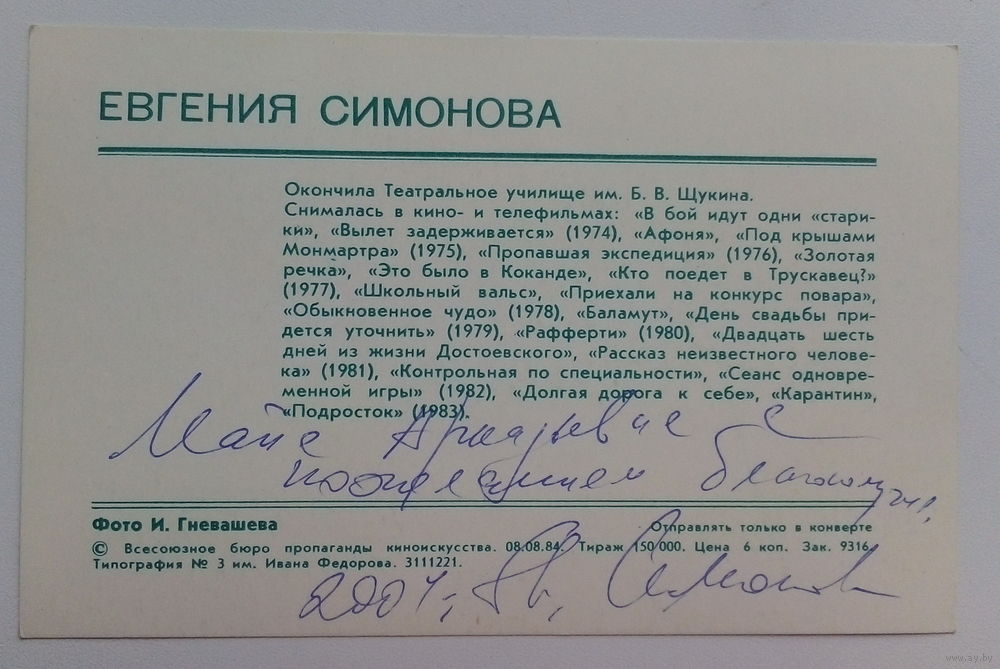 ЕВГЕНИЯ СИМОНОВА
Окончила Театральное училище им. Б. В. Щукина.
Снималась в кино- и телефильмах: «В бой идут одни «стари-
ки», «Вылет задерживается» (1974), «Афоня», «Под крышами
Монмартра» (1975), «Пропавшая экспедиция» (1976), «Золотая
речка», «Это было в Коканде», «Кто поедет в Трускавец?»
(1977), «Школьный вальс», «Приехали на конкурс повара»,
«Обыкновенное чудо» (1978), «Баламут», «День свадьбы при-
дется уточнить» (1979), «Рафферти» (1980), «Двадцать шесть
дней из жизни Достоевского», «Рассказ неизвестного челове-
ка» (1981), «Контрольная по специальности», «Сеанс одновре-
менной игры» (1982), «Долгая дорога к себе», «Карантин»,
«Подросток» (1983).
Майе Аркадьевне с
пожеланием благополучия.
Фото И. Гневашева
Отправлять только в конверте
© Всесоюзное бюро пропаганды киноискусства. 08.08.84. Тираж 150 000. Цена 6 коп. Зак. 9316.
Типография № 3 им. Ивана Федорова. 3111221.
2004г., Симонова
www.ay.by